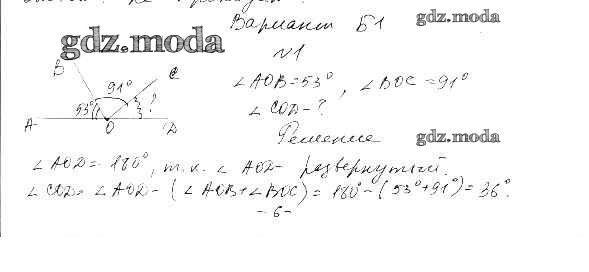 Вариант Б1
gdz.moda
gdz.moda
№1
B
C
91°
53°
?
A
O
D
∠AOB=53°, ∠BOC=91°
∠COD-?
Решение
gdz.moda
∠AOD=180°, т.к. ∠AOD- развернутый.
∠COD=∠AOD-(∠AOB+∠BOC)=180°-(53°+91°)=36°.
-6-